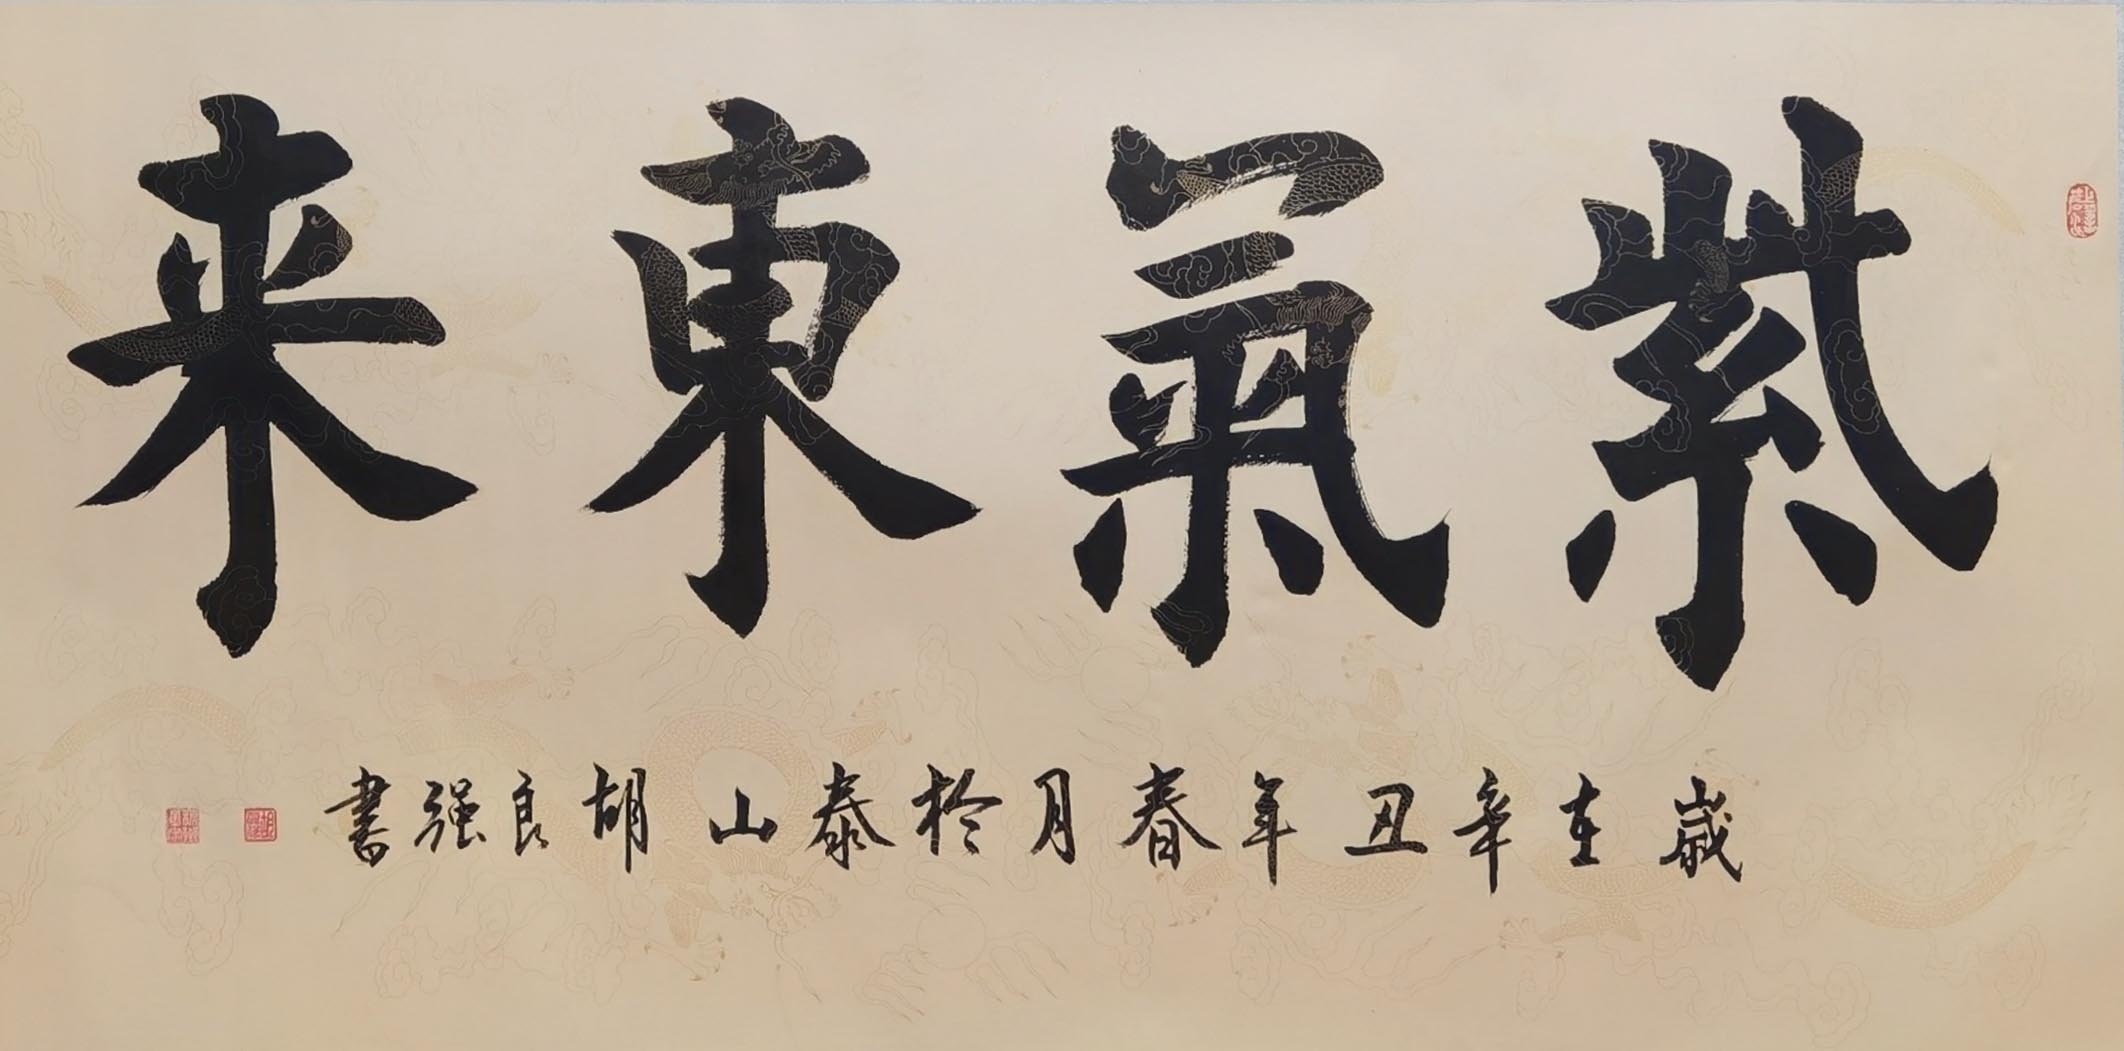 紫氣東来
歲在辛丑年春月於泰山胡良强書